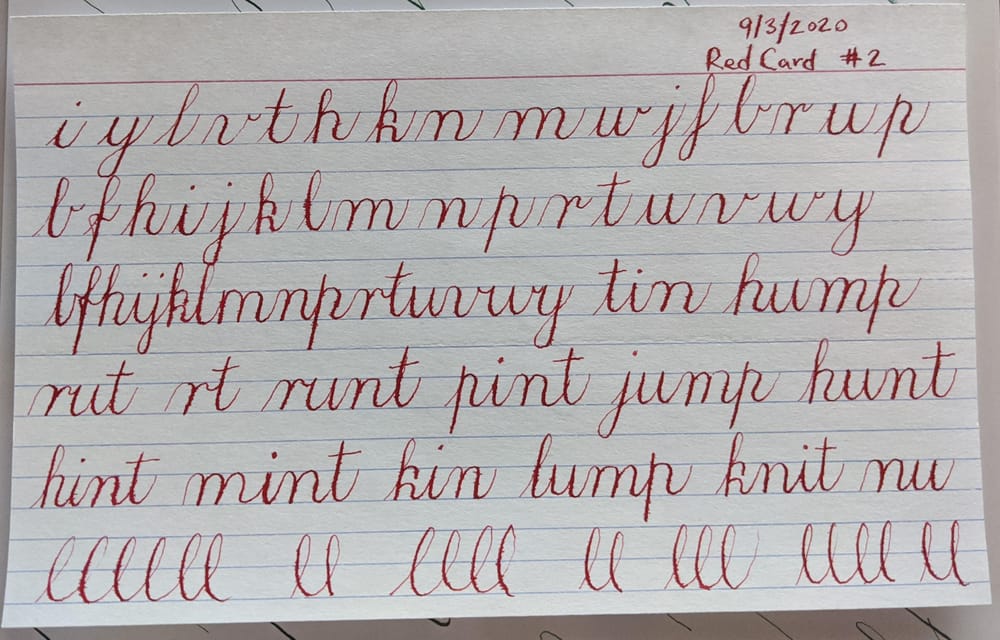 9/3/2020
Red Card #2
i y l v t h k n m w j f b r u p
b f h i j k l m n p r t u v w y
bfhijklmnprtuvwy tin hump
rut rt runt pint jump hunt
hint mint kin lump knit nu
llllll ll llll ll lll llll ll